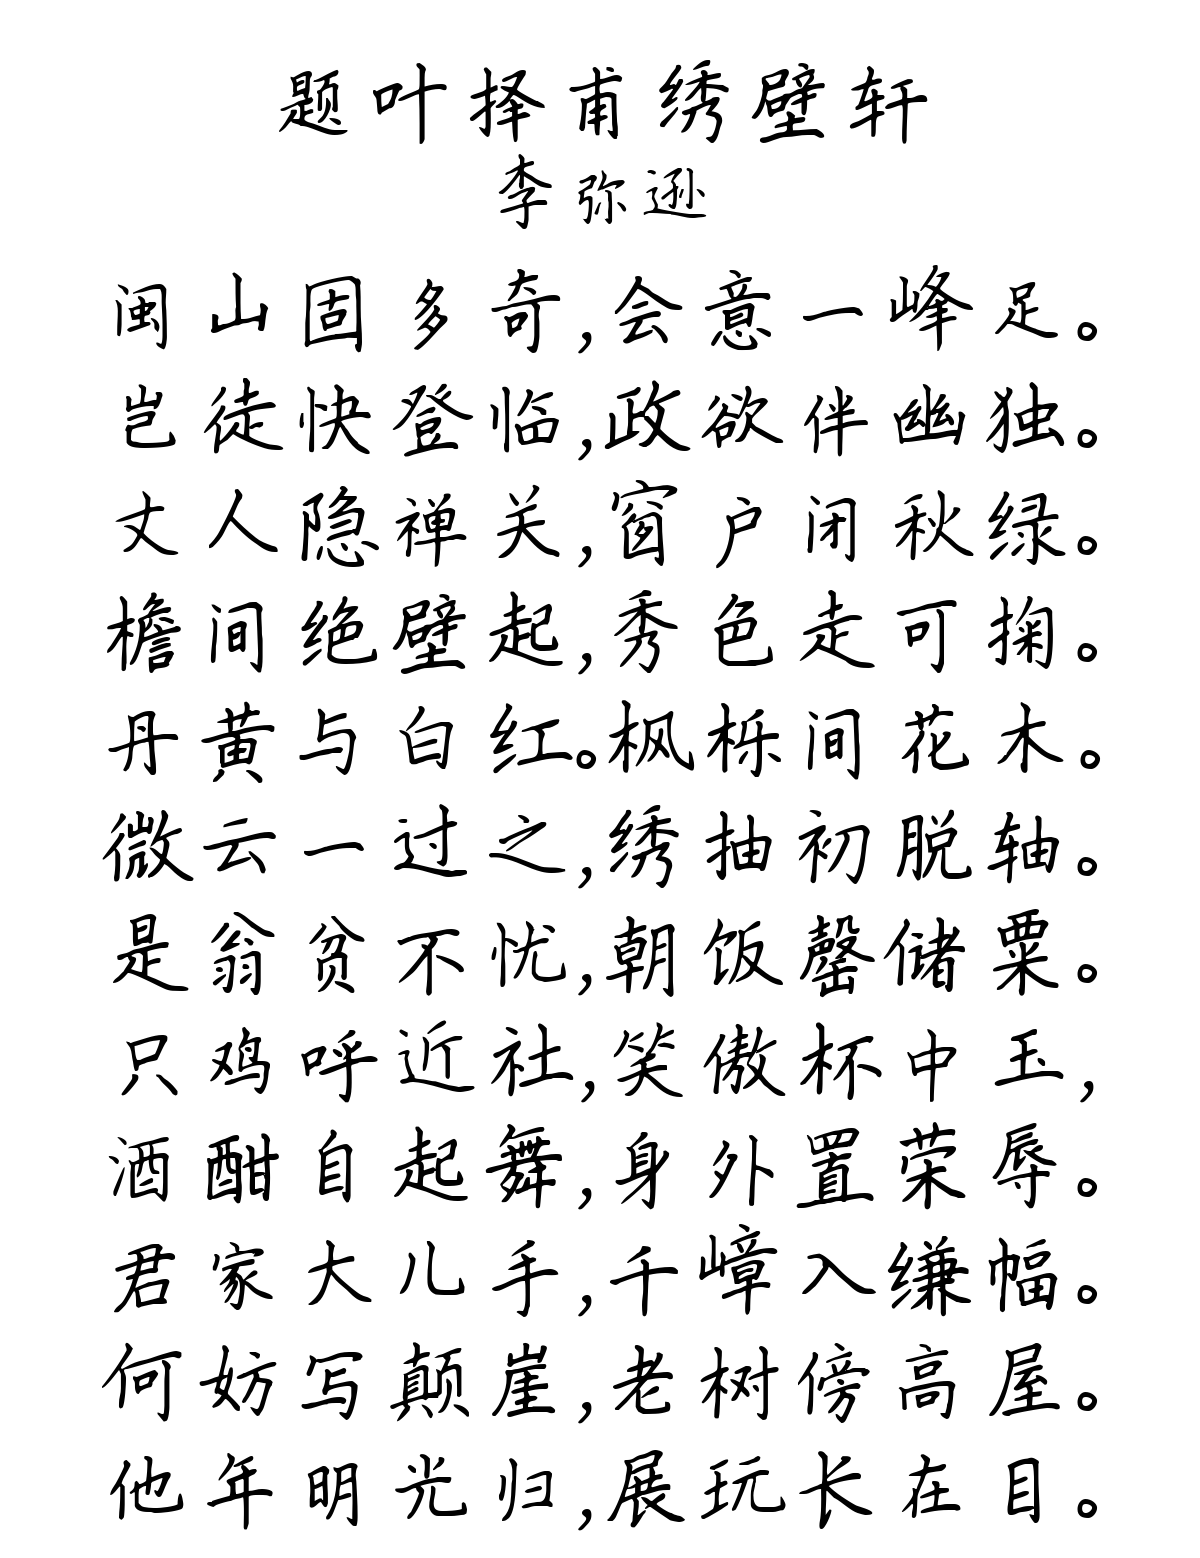 题叶择甫绣壁轩
李弥逊
闽山固多奇,会意一峰足。
岂徒快登临,政欲伴幽独。
丈人隐禅关,窗户闭秋绿。
檐间绝壁起,秀色走可掬。
丹黄与白红。枫栎间花木。
微云一过之,绣抽初脱轴。
是翁贫不忧,朝饭罄储粟。
只鸡呼近社,笑傲杯中玉,
酒酣自起舞,身外置荣辱。
君家大儿手,千嶂入缣幅。
何妨写颠崖,老树傍高屋。
他年明光归,展玩长在目。